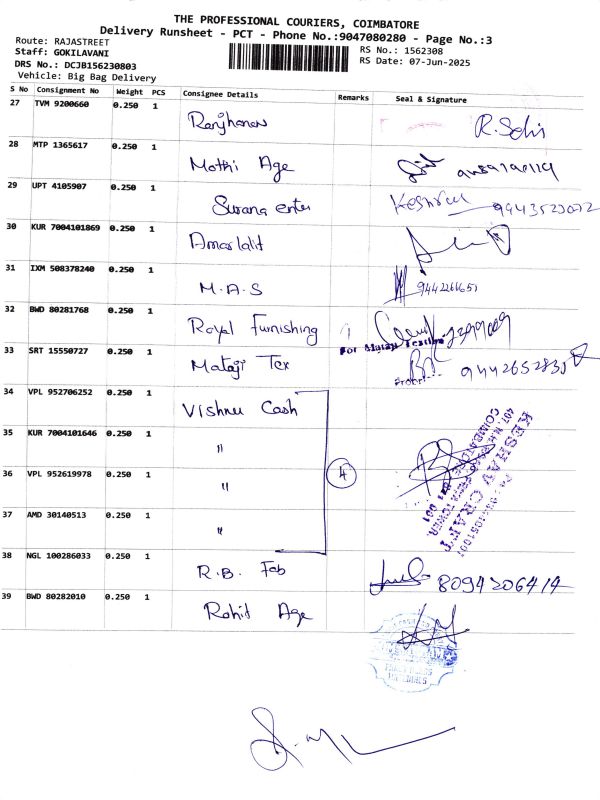 THE PROFESSIONAL COURIERS, COIMBATORE
Delivery Runsheet - PCT - Phone No.:9047080280 - Page No.:3
Route: RAJASTREET
Staff: GOKILAVANI RS No.: 1562308
DRS No.: DCJB156230803 RS Date: 07-Jun-2025
Vehicle: Big Bag Delivery
S No Consignment No Weight PCS Consignee Details Remarks Seal & Signature
27 TVM 9200660 0.250 1
28 MTP 1365617 0.250 1 Mothi Age
29 UPT 4105907 0.250 1 Surana enter
30 KUR 7004101869 0.250 1 Amarlalit
31 IXM 508378240 0.250 1 M.A.S
32 BWD 80281768 0.250 1 Royal Furnishing
33 SRT 15550727 0.250 1 Mataji Tex
34 VPL 952706252 0.250 1 Vishnu Cash
35 KUR 7004101646 0.250 1 "
36 VPL 952619978 0.250 1 " 4
37 AMD 30140513 0.250 1 "
KESHAV CRAFT
38 NGL 100286033 0.250 1 R.B. Fab 8094206414
39 BWD 80282010 0.250 1 Rohit Age